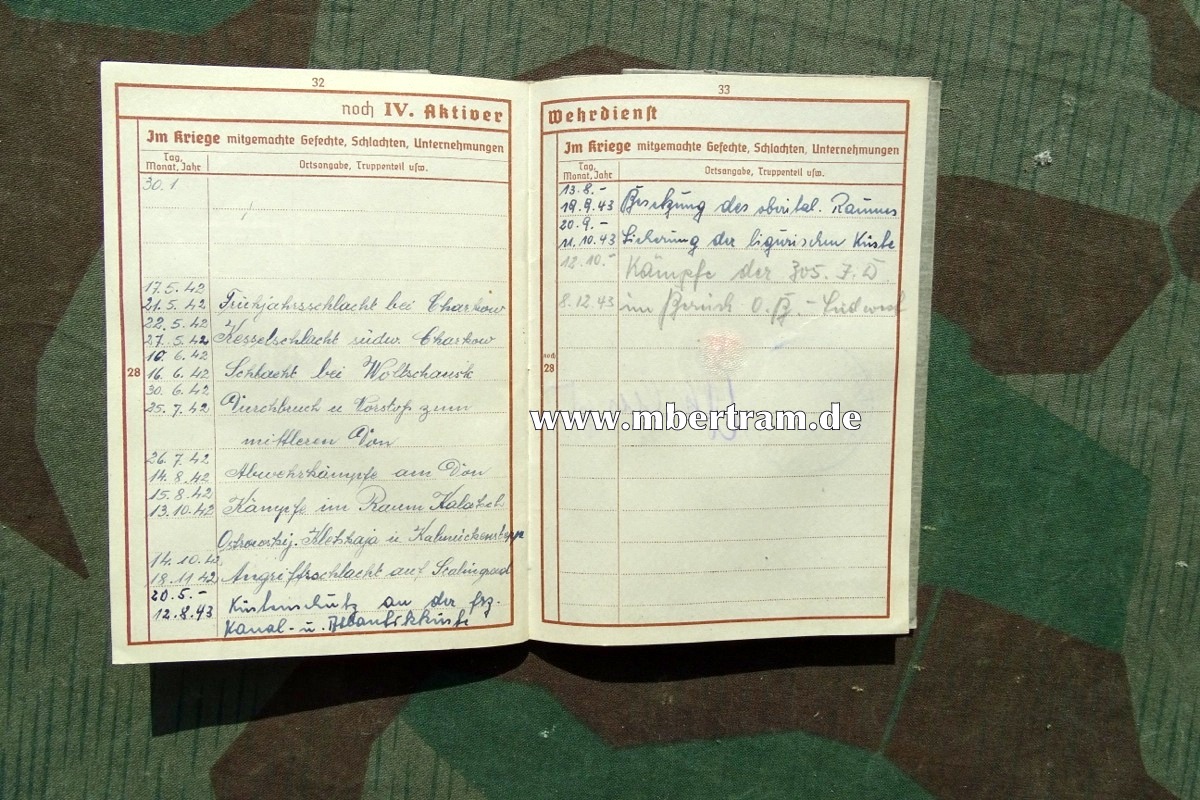 32
noch IV. Aktiver
Im Kriege mitgemachte Gefechte, Schlachten, Unternehmungen
Tag, Monat, Jahr
Ortsangabe, Truppenteil usw.
30.1
17.5.42
21.5.42 Frühjahrsschlacht bei Charkow
22.5.42
27.5.42 Kesselschlacht südw. Charkow
10.6.42
28
16.6.42 Schlacht bei Woltschansk
30.6.42
25.7.42 Durchbruch u Vorstoß zum
mittleren Don
26.7.42
14.8.42 Abwehrkämpfe am Don
15.8.42
13.10.42 Kämpfe im Raum Kalatsch
Kletskaja u Kalmückensteppe
14.10.42
18.11.42 Angriffsschlacht auf Stalingrad
20.5.-
12.8.43 Küstenschutz an der frz.
Kanal- u. Atlantikküste
33
Wehrdienst
Im Kriege mitgemachte Gefechte, Schlachten, Unternehmungen
Tag, Monat, Jahr
Ortsangabe, Truppenteil usw.
13.8.-
19.9.43 Besetzung des oberital. Raumes
20.9.-
11.10.43 Sicherung der ligurischen Küste
12.10.- Kämpfe der 305. I.D.
8.12.43 im Bereich O.B.-Südwest
noch
28
www.mbertram.de